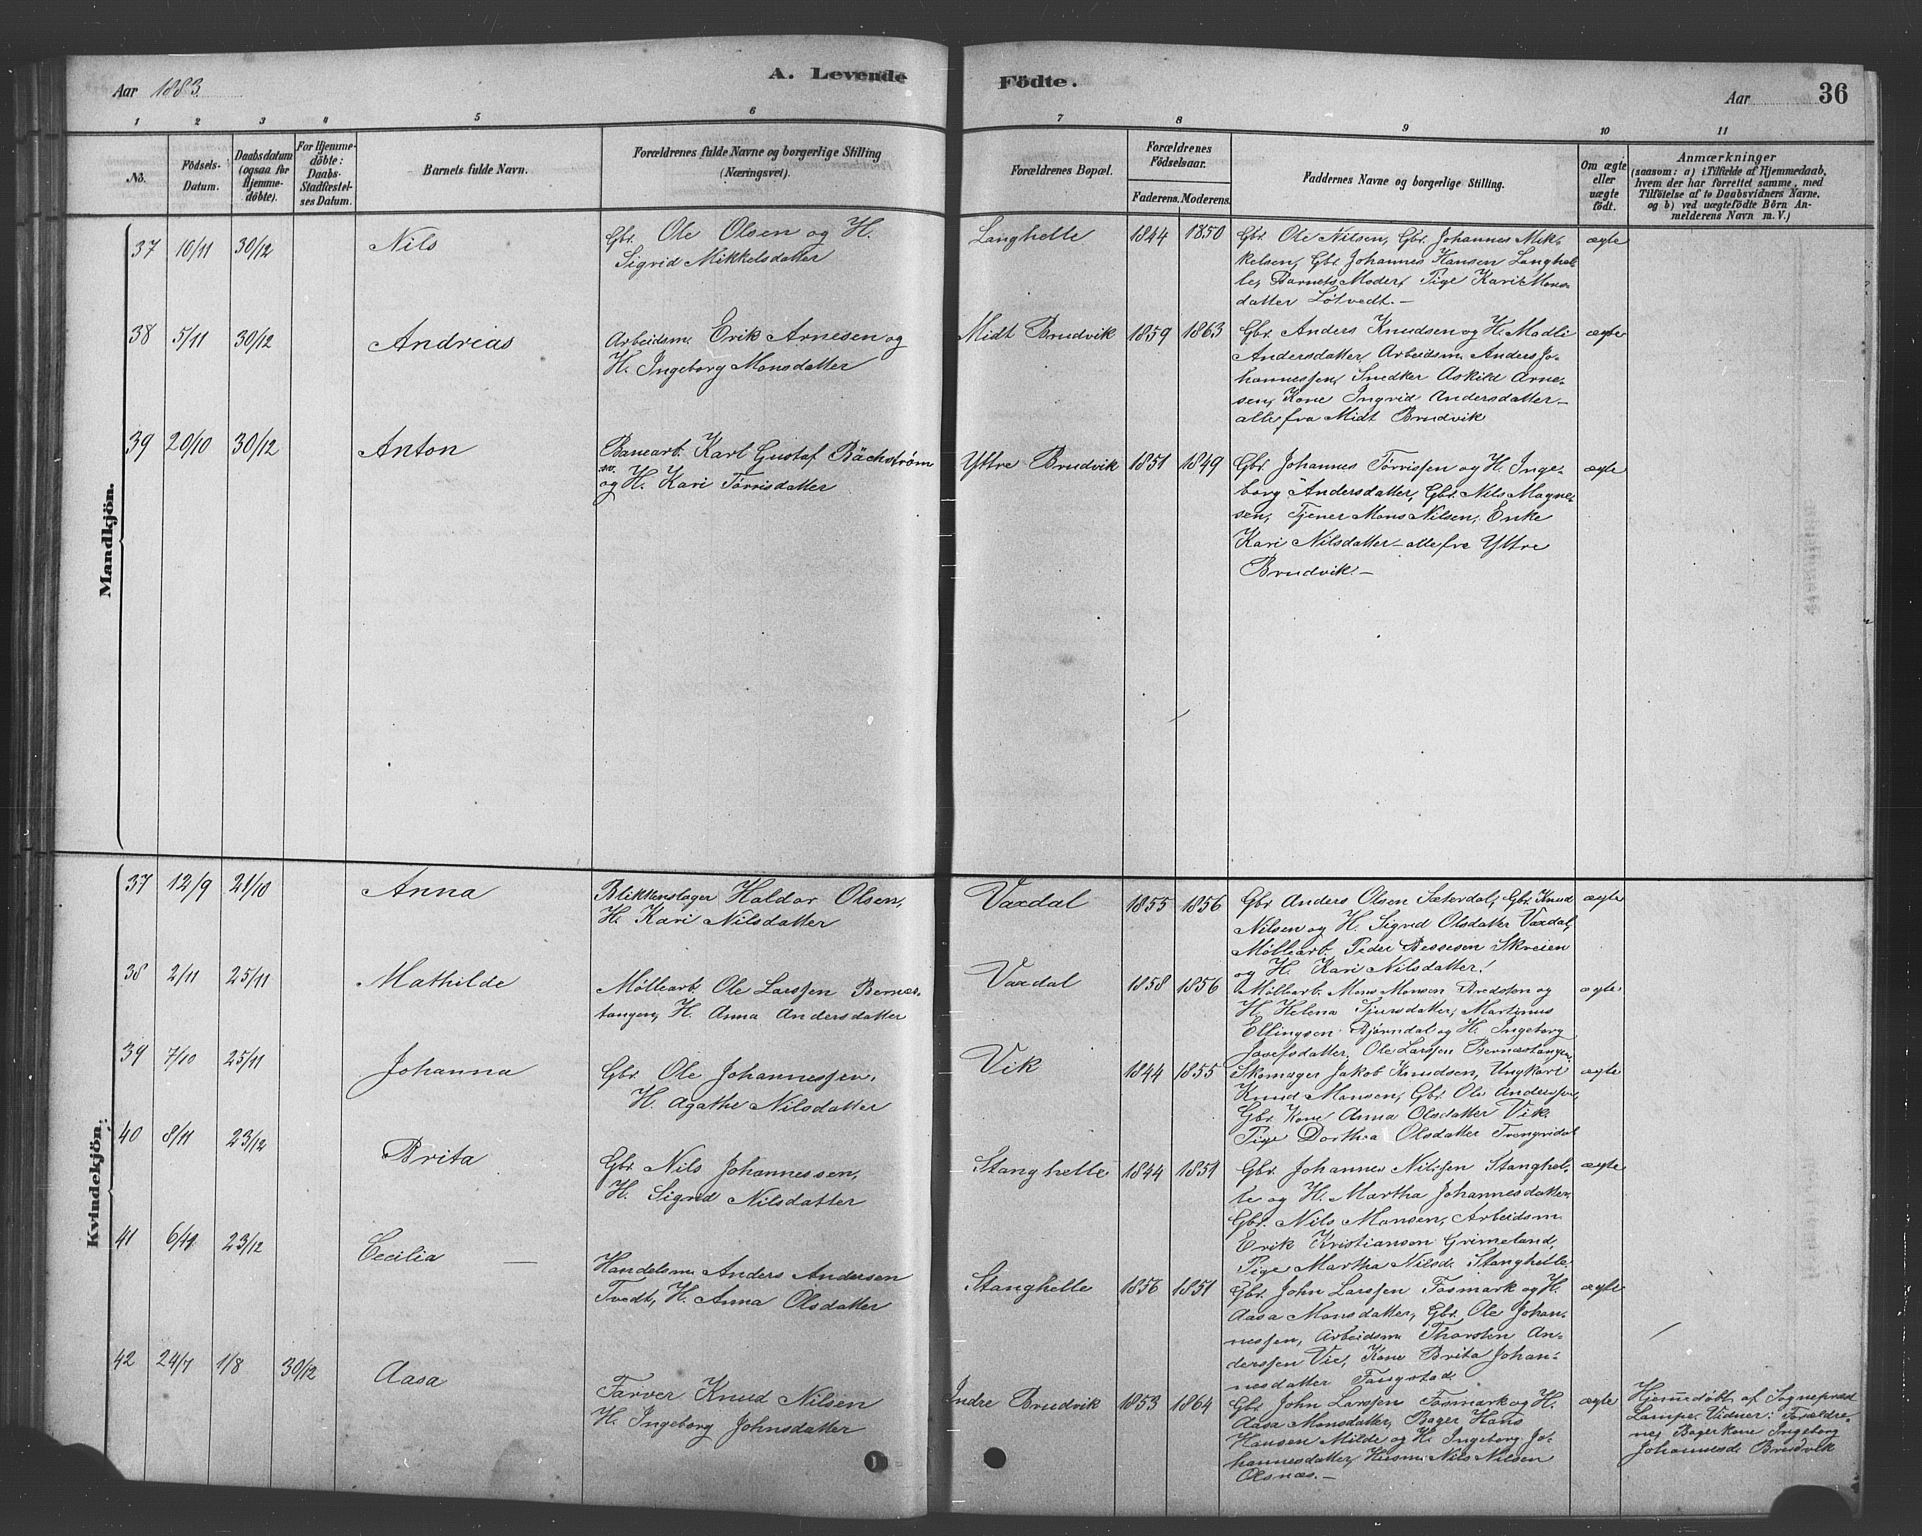 Aar 1883.
A. Levende Födte.
Aar 36
1 2 3 4 5 6 7 8 9 10 11
No.
Födsels-Datum.
Daabsdatum (ogsaa for Hjemme-döbte).
For Hjemme-döbte: Daabs-Stadfæstel-ses Datum.
Barnets fulde Navn.
Forældrenes fulde Navne og borgerlige Stilling (Næringsvei).
Forældrenes Bopæl.
Forældrenes Födselsaar.
Faderens. Moderens.
Faddernes Navne og borgerlige Stilling.
Om ægte eller uægte födt.
Anmærkninger
(saasom: a) i Tilfælde af Hjemmedaab,
hvem der har forrettet samme, med
Tilföielse af to Daabsvidners Navne.
og b) ved uægtefödte Börn An-
melderens Navn m. V.)
Mandkjön.
37 10/11 30/12 Nils
Gbr. Ole Olsen og H.
Sigrid Mikkelsdatter
Langhelle 1844 1850
Gbr. Ole Nilsen, Gbr. Johannes Mik-
kelsen, Gbr. Johannes Hansen Langhel-
le, Barnets Moder, Pige Kari Mons-
datter Lötvedt. —
ægte
38 5/11 30/12 Andreas
Arbeidsm. Erik Arnesen og
H. Ingeborg Monsdatter
Midt Brudvik 1859 1863
Gbr. Anders Knudsen og H. Madli
Andersdatter, Arbeidsm. Anders Jo-
hannessen, Snedker Askild Arne-
sen, Kone Ingrid Andersdatter —
alle fra Midt Brudvik
ægte
39 20/10 30/12 Anton
Banearb. Karl Gustaf Bächström
og H. Kari Törrisdatter
Yttre Brudvik 1851 1849
Gbr. Johannes Törrissen og H. Inge-
borg Andersdatter, Gbr. Nils Magne-
sen, Tjener Mons Nilsen, Enke
Kari Nilsdatter — alle fra Yttre
Brudvik. —
ægte
Kvindekjön.
37 12/9 21/10 Anna
Blikkenslager Haldor Olsen,
H. Kari Nilsdatter
Vaxdal 1855 1856
Gbr. Anders Olsen Sæterdal, Gbr. Knud
Nilsen og H. Sigrid Olsdatter Vaxdal,
Möllearb. Peder Bessesen Skreien
og H. Kari Nilsdatter!
ægte
38 2/11 25/11 Mathilde
Möllearb. Ole Larssen Bernes-
tangen, H. Anna Andersdatter
Vaxdal 1858 1856
Möllearb. Mons Monsen Bredsten og
H. Helena Tjursdatter, Martinus
Ellingsen Björndal og H. Ingeborg
Josefsdatter, Ole Larssen Bernestangen
ægte
39 7/10 25/11 Johanna
Gbr. Ole Johannessen,
H. Agathe Nilsdatter
Vik 1844 1855
Skomager Jakob Knudsen, Ungkarl
Knud Monsen, Gbr. Ole Anderssen,
Gbr. Kone Anna Olsdatter Vik,
Pige Dorthea Olsdatter Trengridal
ægte
40 8/11 23/12 Brita
Gbr. Nils Johannessen,
H. Sigrid Nilsdatter
Stanghelle 1844 1851
Gbr. Johannes Nilssen Stanghel-
le og H. Martha Johannesdatter,
Gbr. Nils Monsen, Arbeidsm.
Erik Kristiansen Grimeland,
Pige Martha Nilsd. Stanghelle
ægte
41 6/11 23/12 Cecilia —
Handelsm. Anders Andersen
Tvedt, H. Anna Olsdatter
Stanghelle 1856 1851
Gbr. John Larssen Fosmark og H.
Aasa Monsdatter, Gbr. Ole Johan-
nessen, Arbeidsm. Thorsten An-
derssen Vie, Kone Brita Johan-
nesdatter Fangstad
ægte
42 24/7 1/8 30/12 Aasa
Farver Knud Nilsen
H. Ingeborg Johnsdatter
Indre Brudvik 1853 1864
Gbr. John Larssen Fosmark og H.
Aasa Monsdatter, Bager Hans
Hansen Milde og H. Ingeborg Jo-
hannesdatter, Husm. Nils Nilsen
Olsnæs. —
ægte
Hjemmedöbt af Sognepræst
Lampe. Vidner: Forældre-
ne, Bagerkone Ingeborg
Johannesd. Brudvik